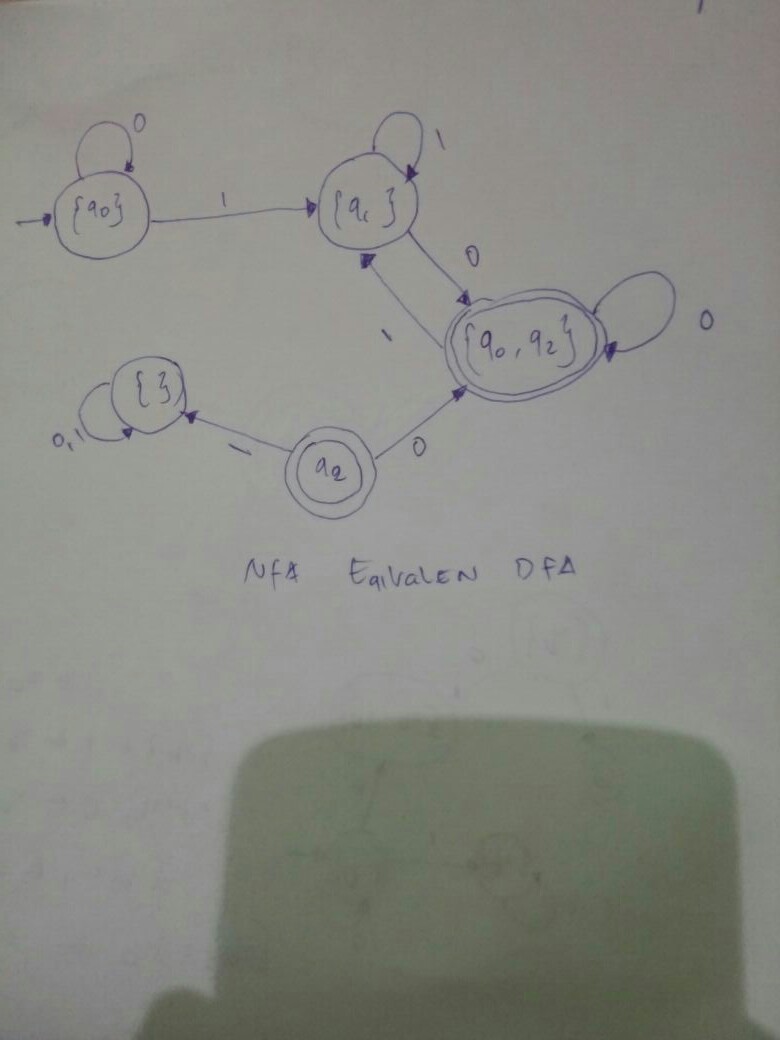 0
1
{q0}
1
{q1}
0
1
{q0, q2}
0
{ }
0,1
1
q2
0
NFA EqivalEN DFA